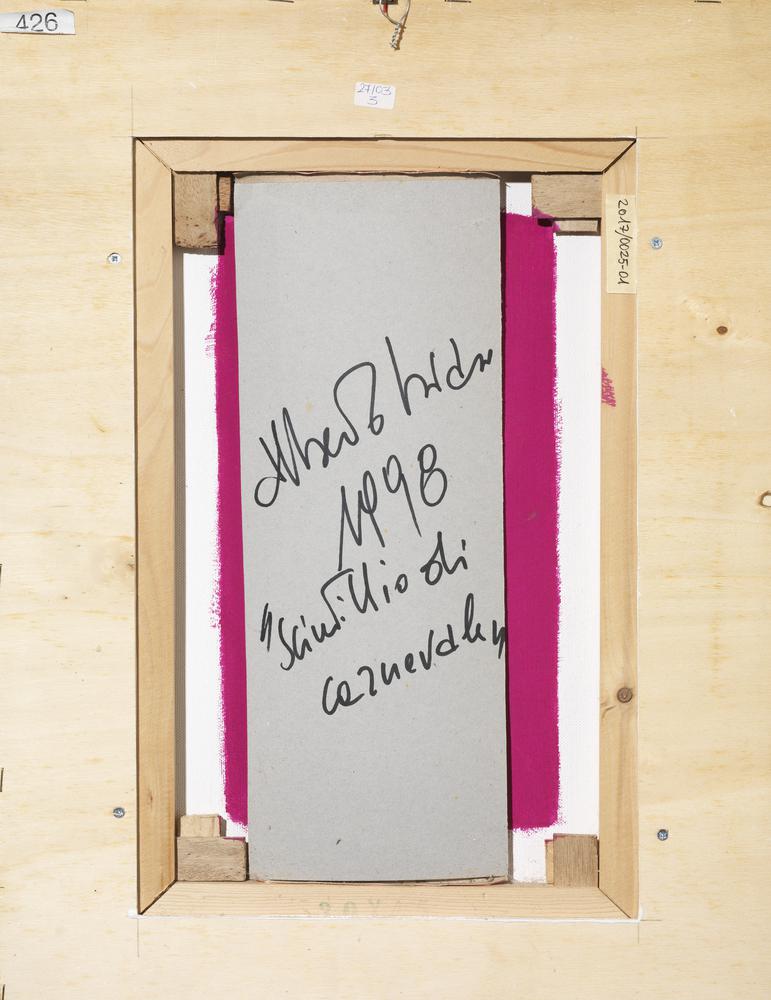 426
27/03
3
2017/0025-01
Alberto
1998
"Scintillio di
carnevale"